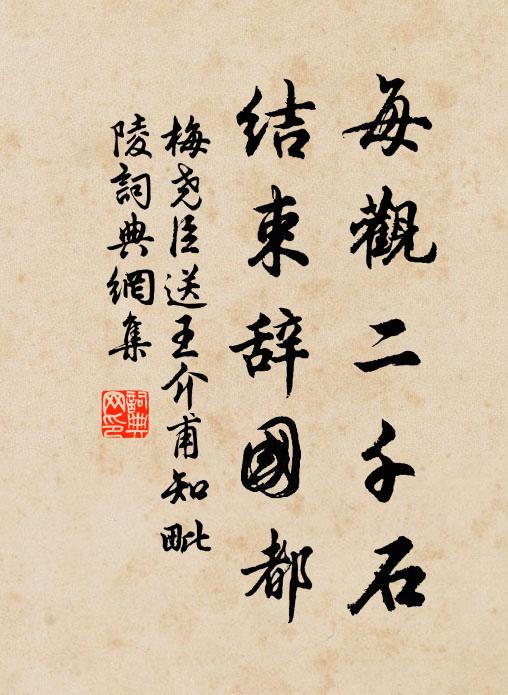 每觀二千石
結束辞國都
梅尧臣送王介甫知毗
陵詞典網集
詞典
网印